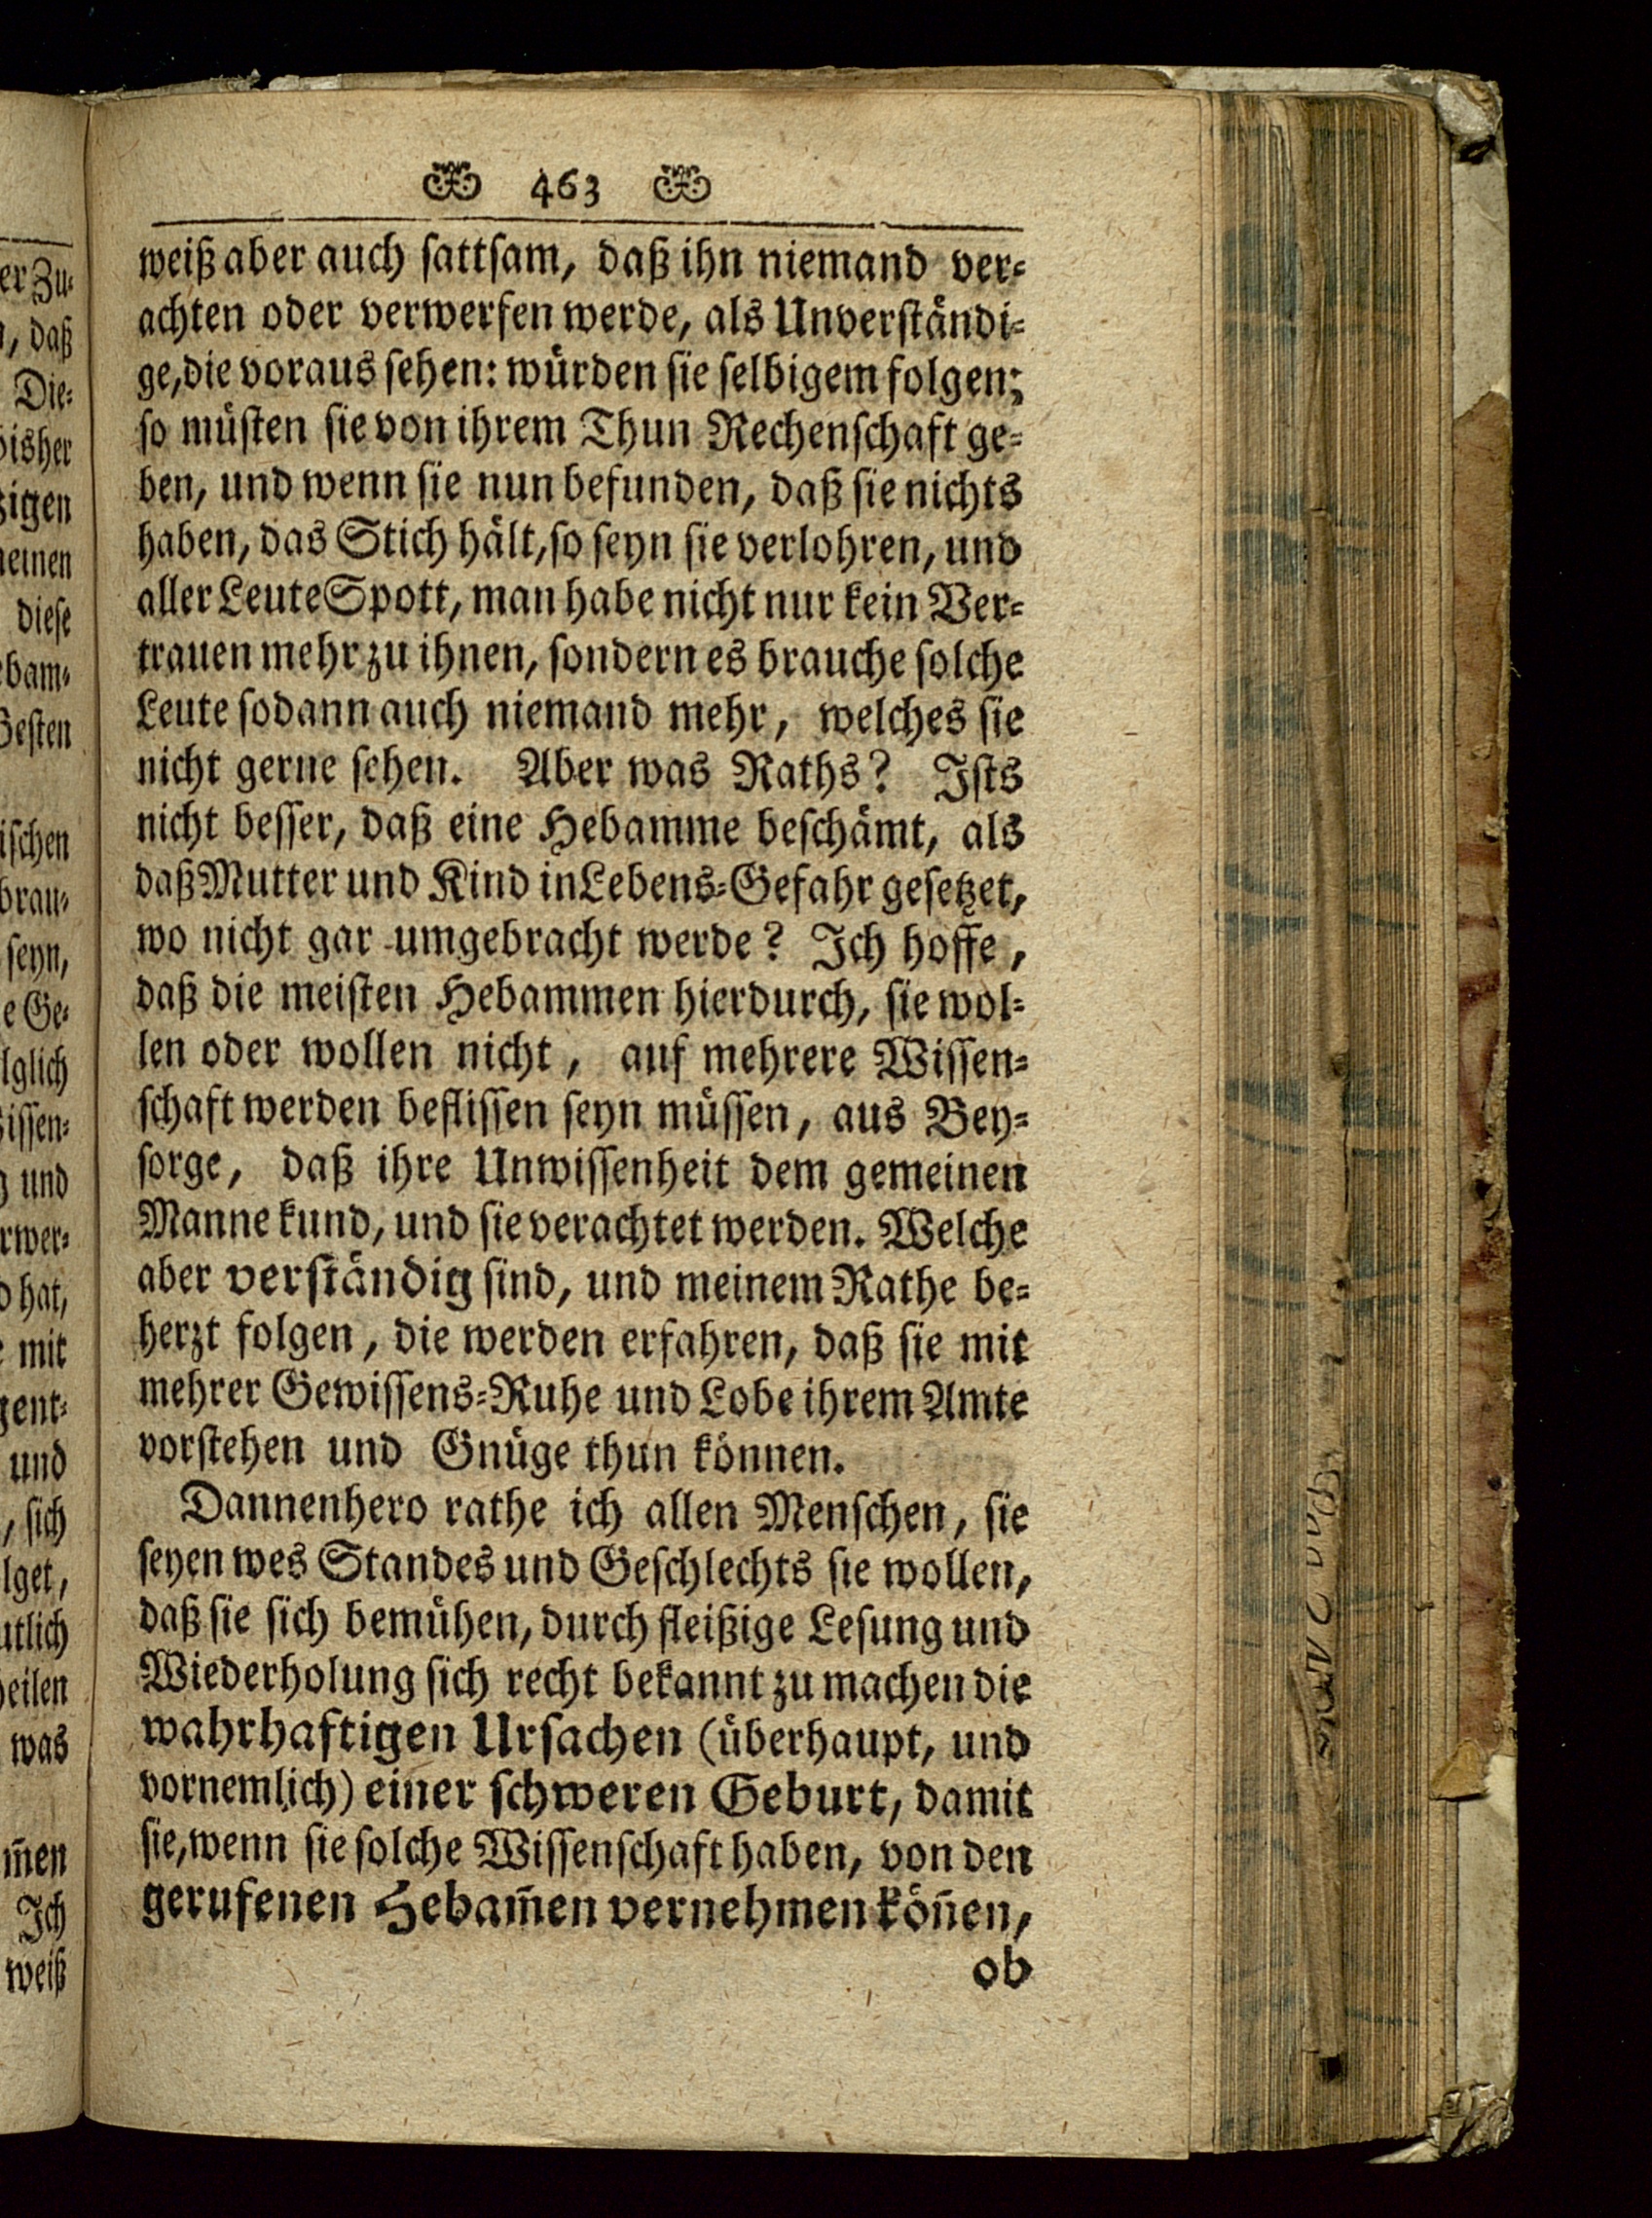 463
weiß aber auch sattsam, daß ihn niemand ver-
achten oder verwerfen werde, als Unverständi-
ge, die voraus sehen: würden sie selbigem folgen;
so müsten sie von ihrem Thun Rechenschaft ge-
ben, und wenn sie nun befunden, daß sie nichts
haben, das Stich hält, so seyn sie verlohren, und
aller Leute Spott, man habe nicht nur kein Ver-
trauen mehr zu ihnen, sondern es brauche solche
Leute sodann auch niemand mehr, welches sie
nicht gerne sehen. Aber was Raths? Ists
nicht besser, daß eine Hebamme beschämt, als
daß Mutter und Kind in Lebens-Gefahr gesetzet,
wo nicht gar umgebracht werde? Ich hoffe,
daß die meisten Hebammen hierdurch, sie wol-
len oder wollen nicht, auf mehrere Wissen-
schaft werden beflissen seyn müssen, aus Bey-
sorge, daß ihre Unwissenheit dem gemeinen
Manne kund, und sie verachtet werden. Welche
aber verständig sind, und meinem Rathe be-
herzt folgen, die werden erfahren, daß sie mit
mehrer Gewissens-Ruhe und Lobe ihrem Amte
vorstehen und Gnüge thun können.
Dannenhero rathe ich allen Menschen, sie
seyen wes Standes und Geschlechts sie wollen,
daß sie sich bemühen, durch fleißige Lesung und
Wiederholung sich recht bekannt zu machen die
wahrhaftigen Ursachen (überhaupt, und
vornemlich) einer schweren Geburt, damit
sie, wenn sie solche Wissenschaft haben, von den
gerufenen Hebam̃en vernehmen kön̄en,
ob